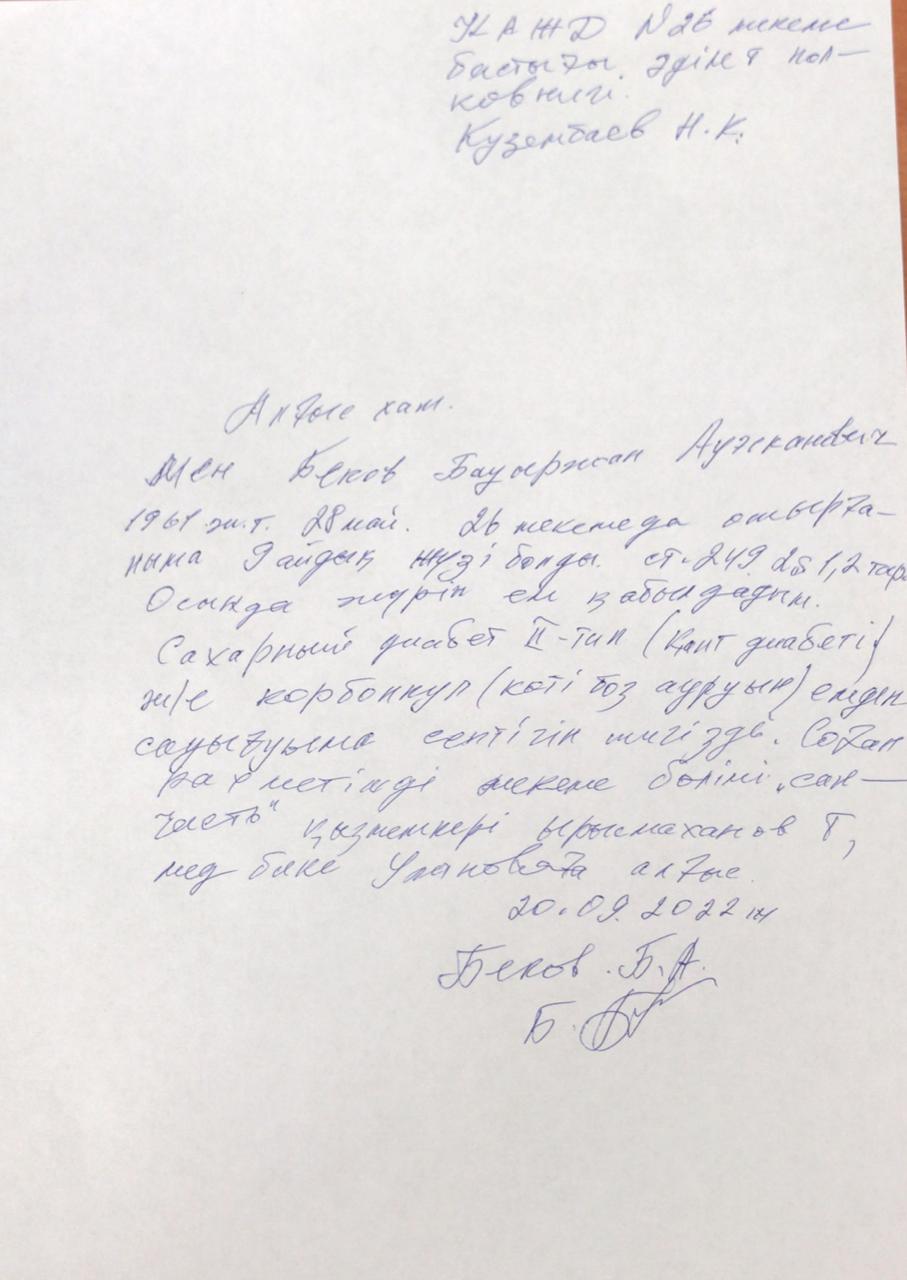 ҚАЖД N26 мекеме
бастығы әділет пол-
ковнигі.
Кузембаев Н.К.
Алғыс хат.
Мен Беков Бауыржан Ауэжканович
1961 ж.т. 28 май. 26 мекемеда отырға-
ныма 9 айдың жүзі болды. ст. 249 2б 1,2 тар
Осында жүріп ем қабылдадым.
Сахарный диабет II-тип (Қант диабеті)
ж/е корбонкул (көті боз ауруын) емдеп
сауығуыма септігін тигізді. Соған
рахметімді мекеме бөлімі „сан-
часть" қызметкері Ырысмаханов Т,
мед бике Улановаға алғыс.
20.09.2022 ж
Беков. Б.А.
Б.